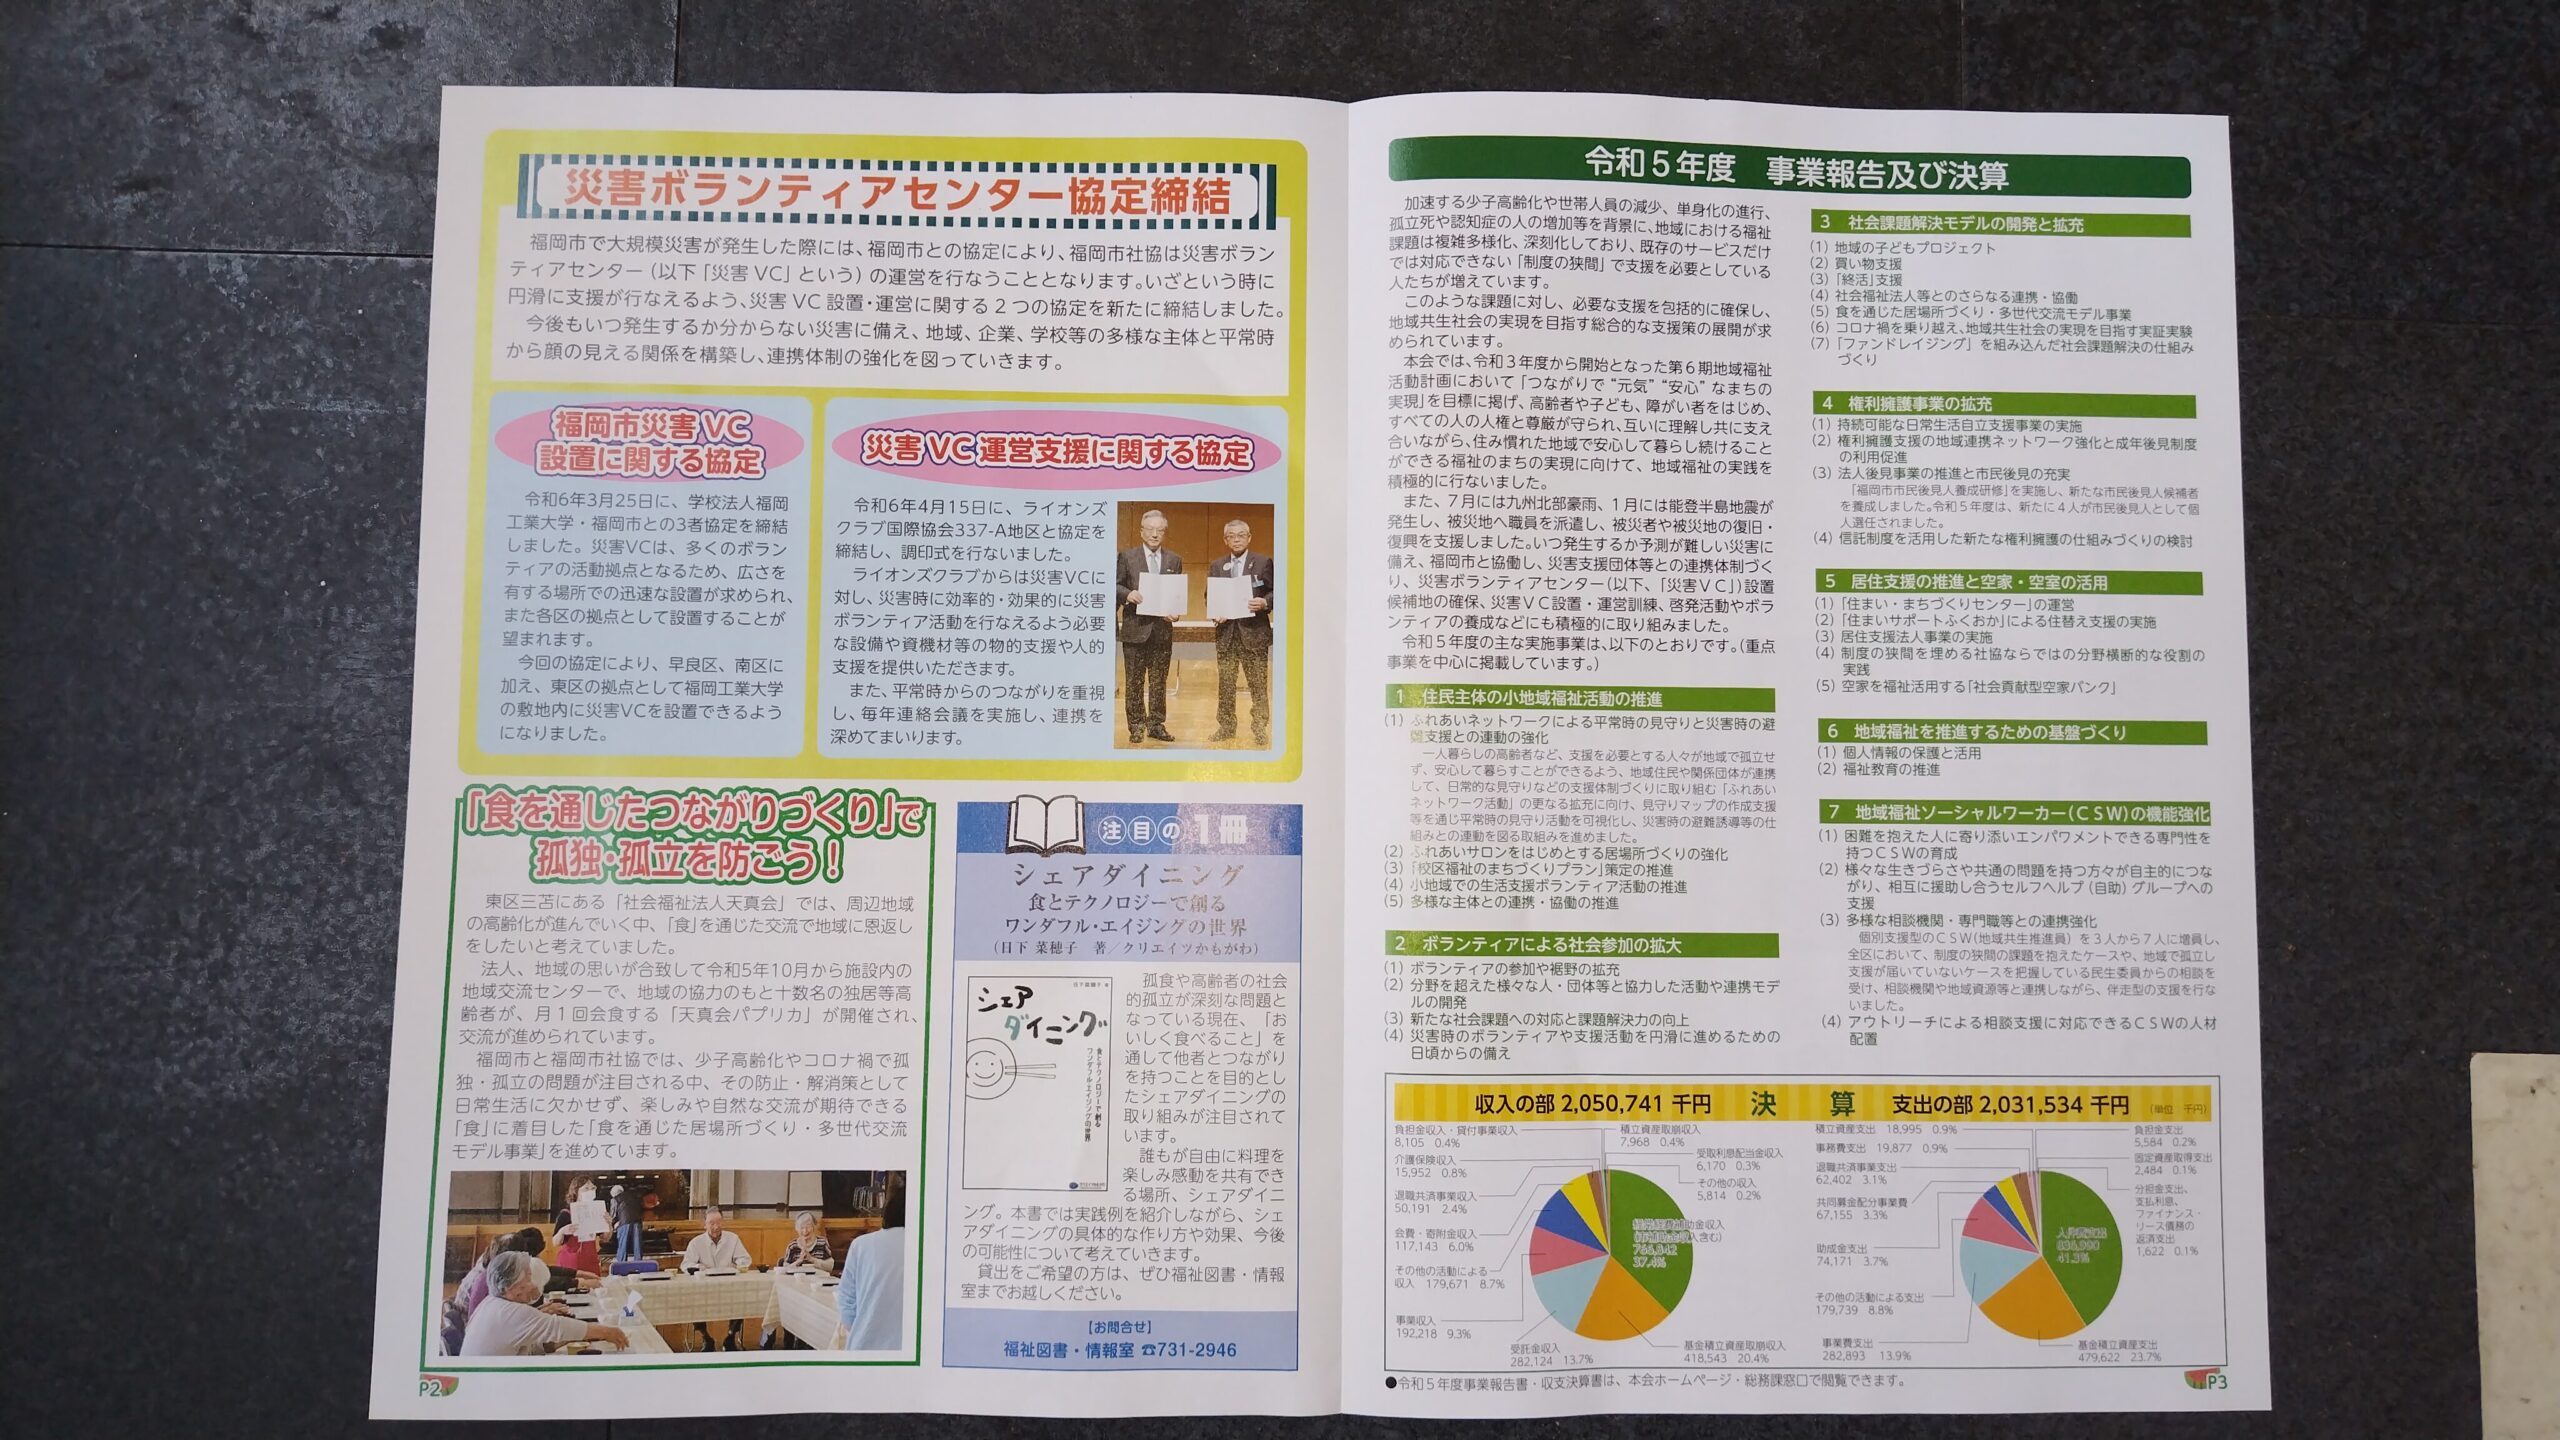 災害ボランティアセンター協定締結
福岡市で大規模災害が発生した際には、福岡市との協定により、福岡市社協は災害ボラン
ティアセンター（以下「災害 VC」という）の運営を行なうこととなります。いざという時に
円滑に支援が行なえるよう、災害 VC 設置・運営に関する２つの協定を新たに締結しました。
今後もいつ発生するか分からない災害に備え、地域、企業、学校等の多様な主体と平常時
から顔の見える関係を構築し、連携体制の強化を図っていきます。
福岡市災害 VC
設置に関する協定
令和6年3月25日に、学校法人福岡
工業大学・福岡市との3者協定を締結
しました。災害VCは、多くのボラン
ティアの活動拠点となるため、広さを
有する場所での迅速な設置が求められ、
また各区の拠点として設置することが
望まれます。
今回の協定により、早良区、南区に
加え、東区の拠点として福岡工業大学
の敷地内に災害VCを設置できるよう
になりました。
災害 VC 運営支援に関する協定
令和6年4月15日に、ライオンズ
クラブ国際協会337-A地区と協定を
締結し、調印式を行ないました。
ライオンズクラブからは災害VCに
対し、災害時に効率的・効果的に災害
ボランティア活動を行なえるよう必要
な設備や資機材等の物的支援や人的
支援を提供いただきます。
また、平常時からのつながりを重視
し、毎年連絡会議を実施し、連携を
深めてまいります。
「食を通じたつながりづくり」で
孤独・孤立を防ごう！
東区三苫にある「社会福祉法人天真会」では、周辺地域
の高齢化が進んでいく中、「食」を通じた交流で地域に恩返し
をしたいと考えていました。
法人、地域の思いが合致して令和5年10月から施設内の
地域交流センターで、地域の協力のもと十数名の独居等高
齢者が、月１回会食する「天真会パプリカ」が開催され、
交流が進められています。
福岡市と福岡市社協では、少子高齢化やコロナ禍で孤
独・孤立の問題が注目される中、その防止・解消策として
日常生活に欠かせず、楽しみや自然な交流が期待できる
「食」に着目した「食を通じた居場所づくり・多世代交流
モデル事業」を進めています。
注目の１冊
シェアダイニング
食とテクノロジーで創る
ワンダフル・エイジングの世界
（日下 菜穂子 著／クリエイツかもがわ）
シェア
ダイニング
食とテクノロジーで創る
ワンダフルエイジングの世界
孤食や高齢者の社会
的孤立が深刻な問題と
なっている現在、「お
いしく食べること」を
通して他者とつながり
を持つことを目的とし
たシェアダイニングの
取り組みが注目されて
います。
誰もが自由に料理を
楽しみ感動を共有でき
る場所、シェアダイニ
ング。本書では実践例を紹介しながら、シェ
アダイニングの具体的な作り方や効果、今後
の可能性について考えていきます。
貸出をご希望の方は、ぜひ福祉図書・情報
室までお越しください。
【お問合せ】
福祉図書・情報室 ☎731-2946
P2
令和５年度 事業報告及び決算
加速する少子高齢化や世帯人員の減少、単身化の進行、
孤立死や認知症の人の増加等を背景に、地域における福祉
課題は複雑多様化、深刻化しており、既存のサービスだけ
では対応できない「制度の狭間」で支援を必要としている
人たちが増えています。
このような課題に対し、必要な支援を包括的に確保し、
地域共生社会の実現を目指す総合的な支援策の展開が求
められています。
本会では、令和３年度から開始となった第６期地域福祉
活動計画において「つながりで“元気”“安心”なまちの
実現」を目標に掲げ、高齢者や子ども、障がい者をはじめ、
すべての人の人権と尊厳が守られ、互いに理解し共に支え
合いながら、住み慣れた地域で安心して暮らし続けること
ができる福祉のまちの実現に向けて、地域福祉の実践を
積極的に行ないました。
また、７月には九州北部豪雨、１月には能登半島地震が
発生し、被災地へ職員を派遣し、被災者や被災地の復旧・
復興を支援しました。いつ発生するか予測が難しい災害に
備え、福岡市と協働し、災害支援団体等との連携体制づく
り、災害ボランティアセンター（以下、「災害ＶＣ」）設置
候補地の確保、災害ＶＣ設置・運営訓練、啓発活動やボラ
ンティアの養成などにも積極的に取り組みました。
令和５年度の主な実施事業は、以下のとおりです。（重点
事業を中心に掲載しています。）
1 住民主体の小地域福祉活動の推進
(1) ふれあいネットワークによる平常時の見守りと災害時の避
難支援との連動の強化
一人暮らしの高齢者など、支援を必要とする人々が地域で孤立せ
ず、安心して暮らすことができるよう、地域住民や関係団体が連携
して、日常的な見守りなどの支援体制づくりに取り組む「ふれあい
ネットワーク活動」の更なる拡充に向け、見守りマップの作成支援
等を通じ平常時の見守り活動を可視化し、災害時の避難誘導等の仕
組みとの連動を図る取組みを進めました。
(2) ふれあいサロンをはじめとする居場所づくりの強化
(3) 「校区福祉のまちづくりプラン」策定の推進
(4) 小地域での生活支援ボランティア活動の推進
(5) 多様な主体との連携・協働の推進
2 ボランティアによる社会参加の拡大
(1) ボランティアの参加や裾野の拡充
(2) 分野を超えた様々な人・団体等と協力した活動や連携モデ
ルの開発
(3) 新たな社会課題への対応と課題解決力の向上
(4) 災害時のボランティアや支援活動を円滑に進めるための
日頃からの備え
3 社会課題解決モデルの開発と拡充
(1) 地域の子どもプロジェクト
(2) 買い物支援
(3) 「終活」支援
(4) 社会福祉法人等とのさらなる連携・協働
(5) 食を通じた居場所づくり・多世代交流モデル事業
(6) コロナ禍を乗り越え、地域共生社会の実現を目指す実証実験
(7) 「ファンドレイジング」を組み込んだ社会課題解決の仕組み
づくり
4 権利擁護事業の拡充
(1) 持続可能な日常生活自立支援事業の実施
(2) 権利擁護支援の地域連携ネットワーク強化と成年後見制度
の利用促進
(3) 法人後見事業の推進と市民後見の充実
「福岡市市民後見人養成研修」を実施し、新たな市民後見人候補者
を養成しました。令和５年度は、新たに４人が市民後見人として個
人選任されました。
(4) 信託制度を活用した新たな権利擁護の仕組みづくりの検討
5 居住支援の推進と空家・空室の活用
(1) 「住まい・まちづくりセンター」の運営
(2) 「住まいサポートふくおか」による住替え支援の実施
(3) 居住支援法人事業の実施
(4) 制度の狭間を埋める社協ならではの分野横断的な役割の
実践
(5) 空家を福祉活用する「社会貢献型空家バンク」
6 地域福祉を推進するための基盤づくり
(1) 個人情報の保護と活用
(2) 福祉教育の推進
7 地域福祉ソーシャルワーカー（ＣＳＷ）の機能強化
(1) 困難を抱えた人に寄り添いエンパワメントできる専門性を
持つＣＳＷの育成
(2) 様々な生きづらさや共通の問題を持つ方々が自主的につな
がり、相互に援助し合うセルフヘルプ（自助）グループへの
支援
(3) 多様な相談機関・専門職等との連携強化
個別支援型のＣＳＷ（地域共生推進員）を３人から７人に増員し、
全区において、制度の狭間の課題を抱えたケースや、地域で孤立し
支援が届いていないケースを把握している民生委員からの相談を
受け、相談機関や地域資源等と連携しながら、伴走型の支援を行な
いました。
(4) アウトリーチによる相談支援に対応できるＣＳＷの人材
配置
収入の部 2,050,741 千円 決 算 支出の部 2,031,534 千円 （単位 千円）
負担金収入・貸付事業収入
8,105 0.4%
介護保険収入
15,952 0.8%
退職共済事業収入
50,191 2.4%
会費・寄附金収入
117,143 6.0%
その他の活動による
収入 179,671 8.7%
事業収入
192,218 9.3%
受託金収入
282,124 13.7%
積立資産取崩収入
7,968 0.4%
受取利息配当金収入
6,170 0.3%
その他の収入
5,814 0.2%
経常経費補助金収入
766,842
37.4%
基金積立資産取崩収入
418,543 20.4%
積立資産支出 18,995 0.9%
事務費支出 19,877 0.9%
退職共済事業支出
62,402 3.1%
共同募金配分事業費
67,155 3.3%
助成金支出
74,171 3.7%
その他の活動による支出
179,739 8.8%
事業費支出
282,893 13.9%
負担金支出
5,584 0.2%
固定資産取得支出
2,484 0.1%
分担金支出、
支払利息、
ファイナンス・
リース債務の
返済支出
1,622 0.1%
人件費支出
41.3%
基金積立資産支出
479,622 23.7%
●令和５年度事業報告書・収支決算書は、本会ホームページ・総務課窓口で閲覧できます。
P3